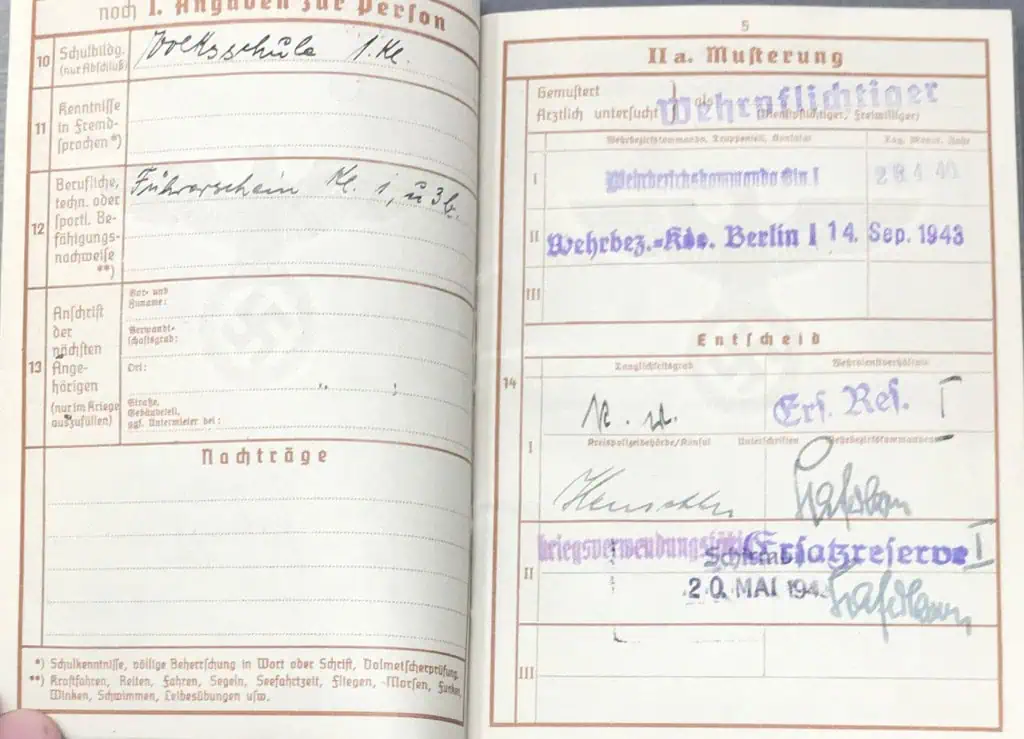 noch I. Angaben zur Person
10
Schulbildg.
(nur Abschluß)
Volksschule 1. Kl.
11
Kenntnisse
in Fremd-
sprachen *)
12
Berufliche,
techn. oder
sportl. Be-
fähigungs-
nachweise
**)
Führerschein Kl. 1, u 3 b.
13
Anschrift
der
nächsten
Ange-
hörigen
(nur im Kriege
auszufüllen)
Vor- und
Zuname:
Verwandt-
schaftsgrad:
Ort:
Straße,
Gebäudeteil,
ggf. Untermieter bei:
Nachträge
*) Schulkenntnisse, völlige Beherrschung in Wort oder Schrift, Dolmetscherprüfung.
**) Kraftfahren, Reiten, Fahren, Segeln, Seefahrtzeit, Fliegen, Morsen, Funken,
Winken, Schwimmen, Leibesübungen usw.
5
II a. Musterung
Gemustert
Ärztlich untersucht
als
Wehrpflichtiger
(Dienstpflichtiger, Freiwilliger)
Wehrbezirkskommando, Truppenteil, Konsulat
Tag, Monat, Jahr
I
Wehrbezirkskommando Bln. I
28 4 40
II
Wehrbez.-Kdo. Berlin I
14. Sep. 1943
III
Entscheid
14
Tauglichkeitsgrad
Wehrdienstverhältnis
I
k. v.
Ers. Res. I
Kreispolizeibehörde/Konsul
Unterschriften
Wehrbezirkskommandeur
II
kriegsverwendungsfähig
Ersatzreserve I
20. MAI 194
III